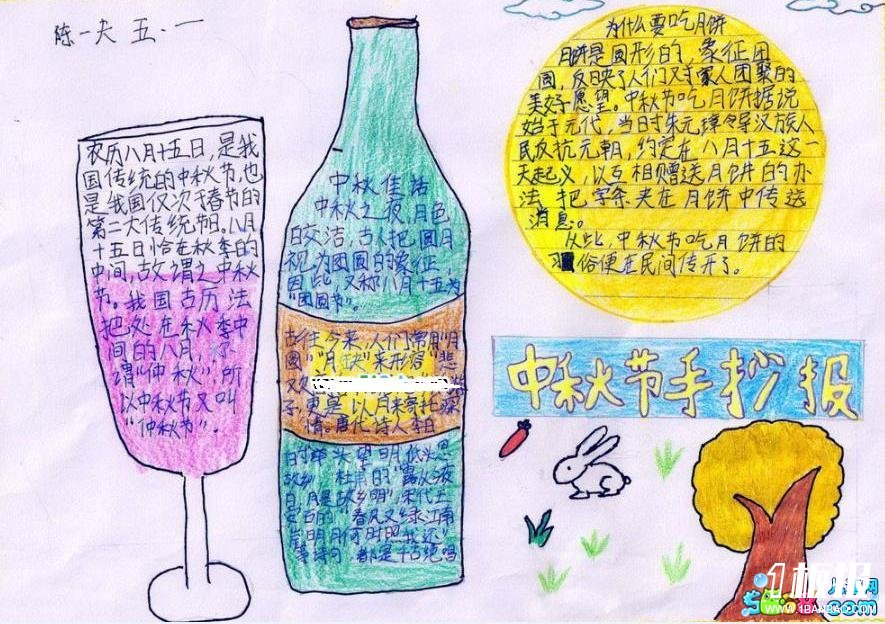 陈一夫 五.一
农历八月十五日,是我
国传统的中秋节,也
是我国仅次于春节的
第二大传统节日。八月
十五日恰在秋季的
中间,故谓之中秋
节。我国古历法
把处在秋季中
间的八月,
谓“仲秋”,所
以中秋节又叫
“仲秋节”.
中秋佳话
中秋之夜,月色
皎洁,古人把圆月
视为团圆的象征,
因此,又称八月十五为
“团圆节”。
古往今来,人们常用“月
圆”“月缺”来形容“悲
子,更是以月来寄托深
情。唐代诗人李白
头望明 低头思
故乡” 杜甫的“露从
白,月是故乡明”宋代王
安石的“春风又绿江南
岸 明月何时照我还”
等诗句,都是千古绝唱
为什么要吃月饼
月饼是圆形的,象征团
圆,反映了人们对家人团聚的
美好愿望。中秋节吃月饼据说
始于元代,当时朱元璋领导汉族人
民反抗元朝,约定在八月十五这一
天起义,以互相赠送月饼的办
法把字条夹在月饼中传送
消息。
从此,中秋节吃月饼的
习俗便在民间传开了。
中秋节手抄报
1板报
WWW.1BANBAO.COM
com